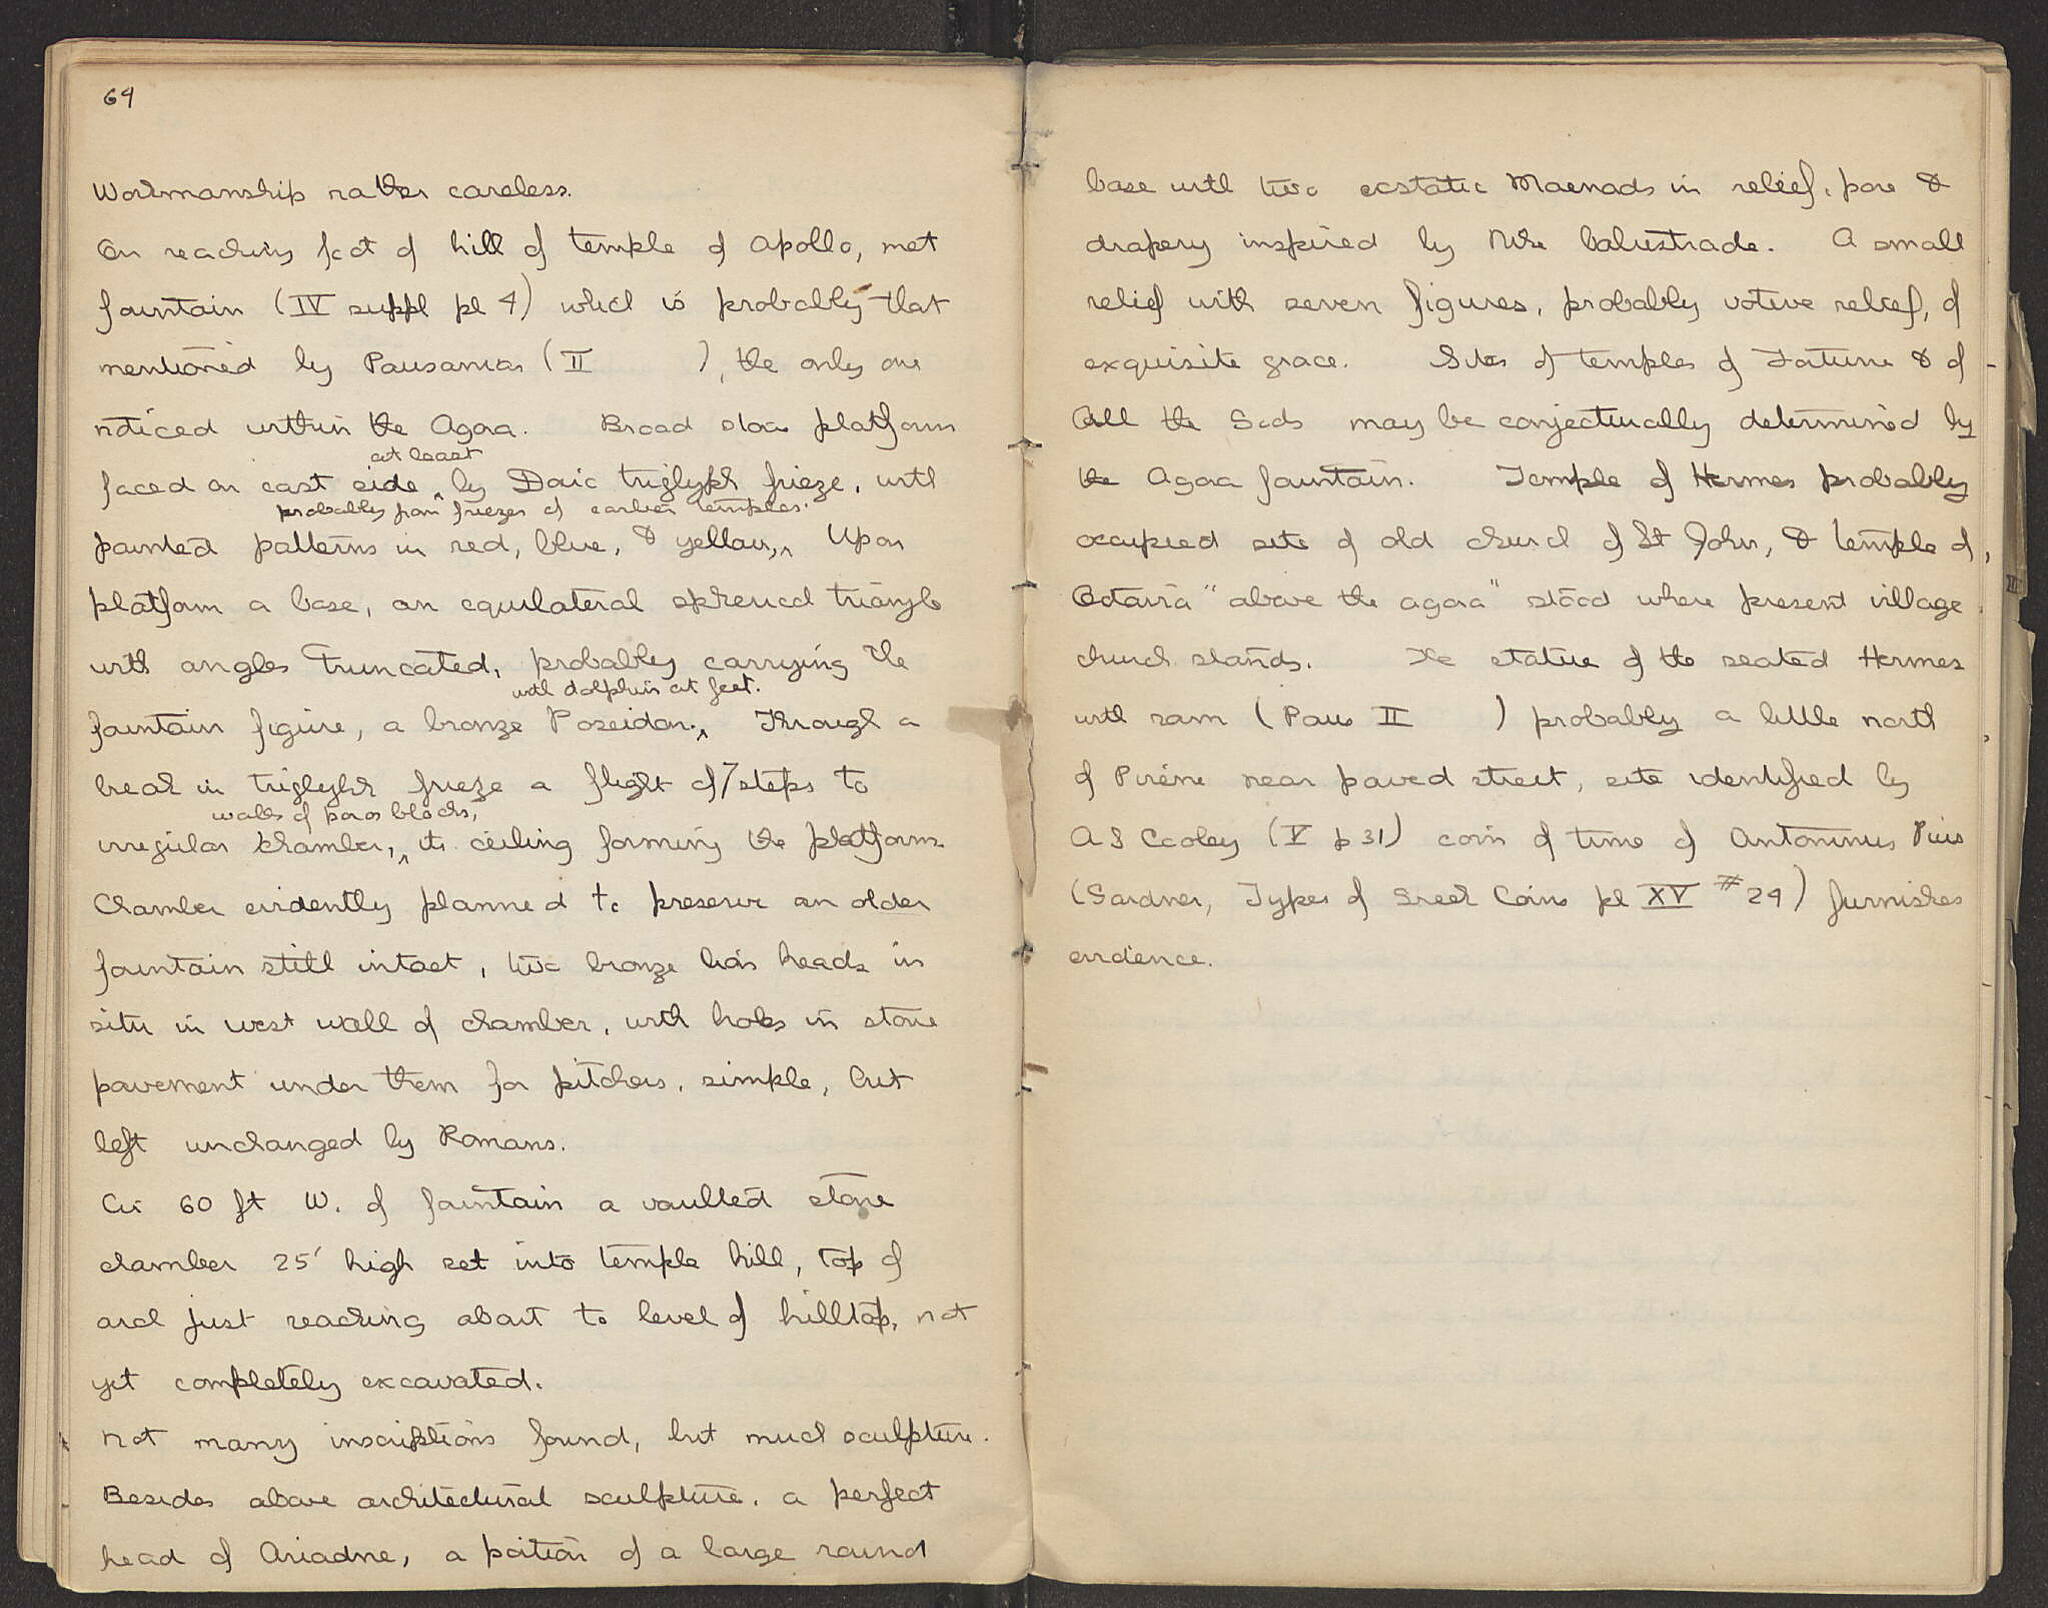 64
Workmanship rather careless.
On reaching foot of hill of temple of Apollo, met
fountain (IV suppl pl 4) which is probably that
mentioned by Pausanias (II ), the only one
noticed within the Agora. Broad stone platform
at least
faced on east side ^ by Doric triglyph frieze, with
probably from friezes of earlier temples.
painted patterns in red, blue, & yellow,^ Upon
platform a base, an equilateral spherical triangle
with angles truncated, probably carrying the
with dolphin at feet.
fountain figure, a bronze Poseidon.^ Through a
break in triglyph frieze a flight of 7 steps to
walls of poros blocks,
irregular chamber,^ its ceiling forming the platform.
Chamber evidently planned to preserve an older
fountain still intact, two bronze lion heads in
situ in west wall of chamber, with holes in stone
pavement under them for pitchers, simple, but
left unchanged by Romans.
Ca 60 ft W. of fountain a vaulted stone
chamber 25' high set into temple hill, top of
arch just reaching about to level of hilltop, not
yet completely excavated.
Not many inscriptions found, but much sculpture.
Besides above architectural sculpture, a perfect
head of Ariadne, a portion of a large round
base with two ecstatic Maenads in relief, pose &
drapery inspired by Nike balustrade. A small
relief with seven figures, probably votive relief, of
exquisite grace. Sites of temples of Fortune & of
All the Gods may be conjecturally determined by
the Agora fountain. Temple of Hermes probably
occupied site of old church of St John, & temple of
Octavia "above the agora" stood where present village
church stands. The statue of the seated Hermes
with ram (Paus II ) probably a little north
of Pirene near paved street, site identified by
A S Cooley (V p 31) coin of time of Antoninus Pius
(Gardner, Types of Greek Coins pl XV #24) furnishes
evidence.